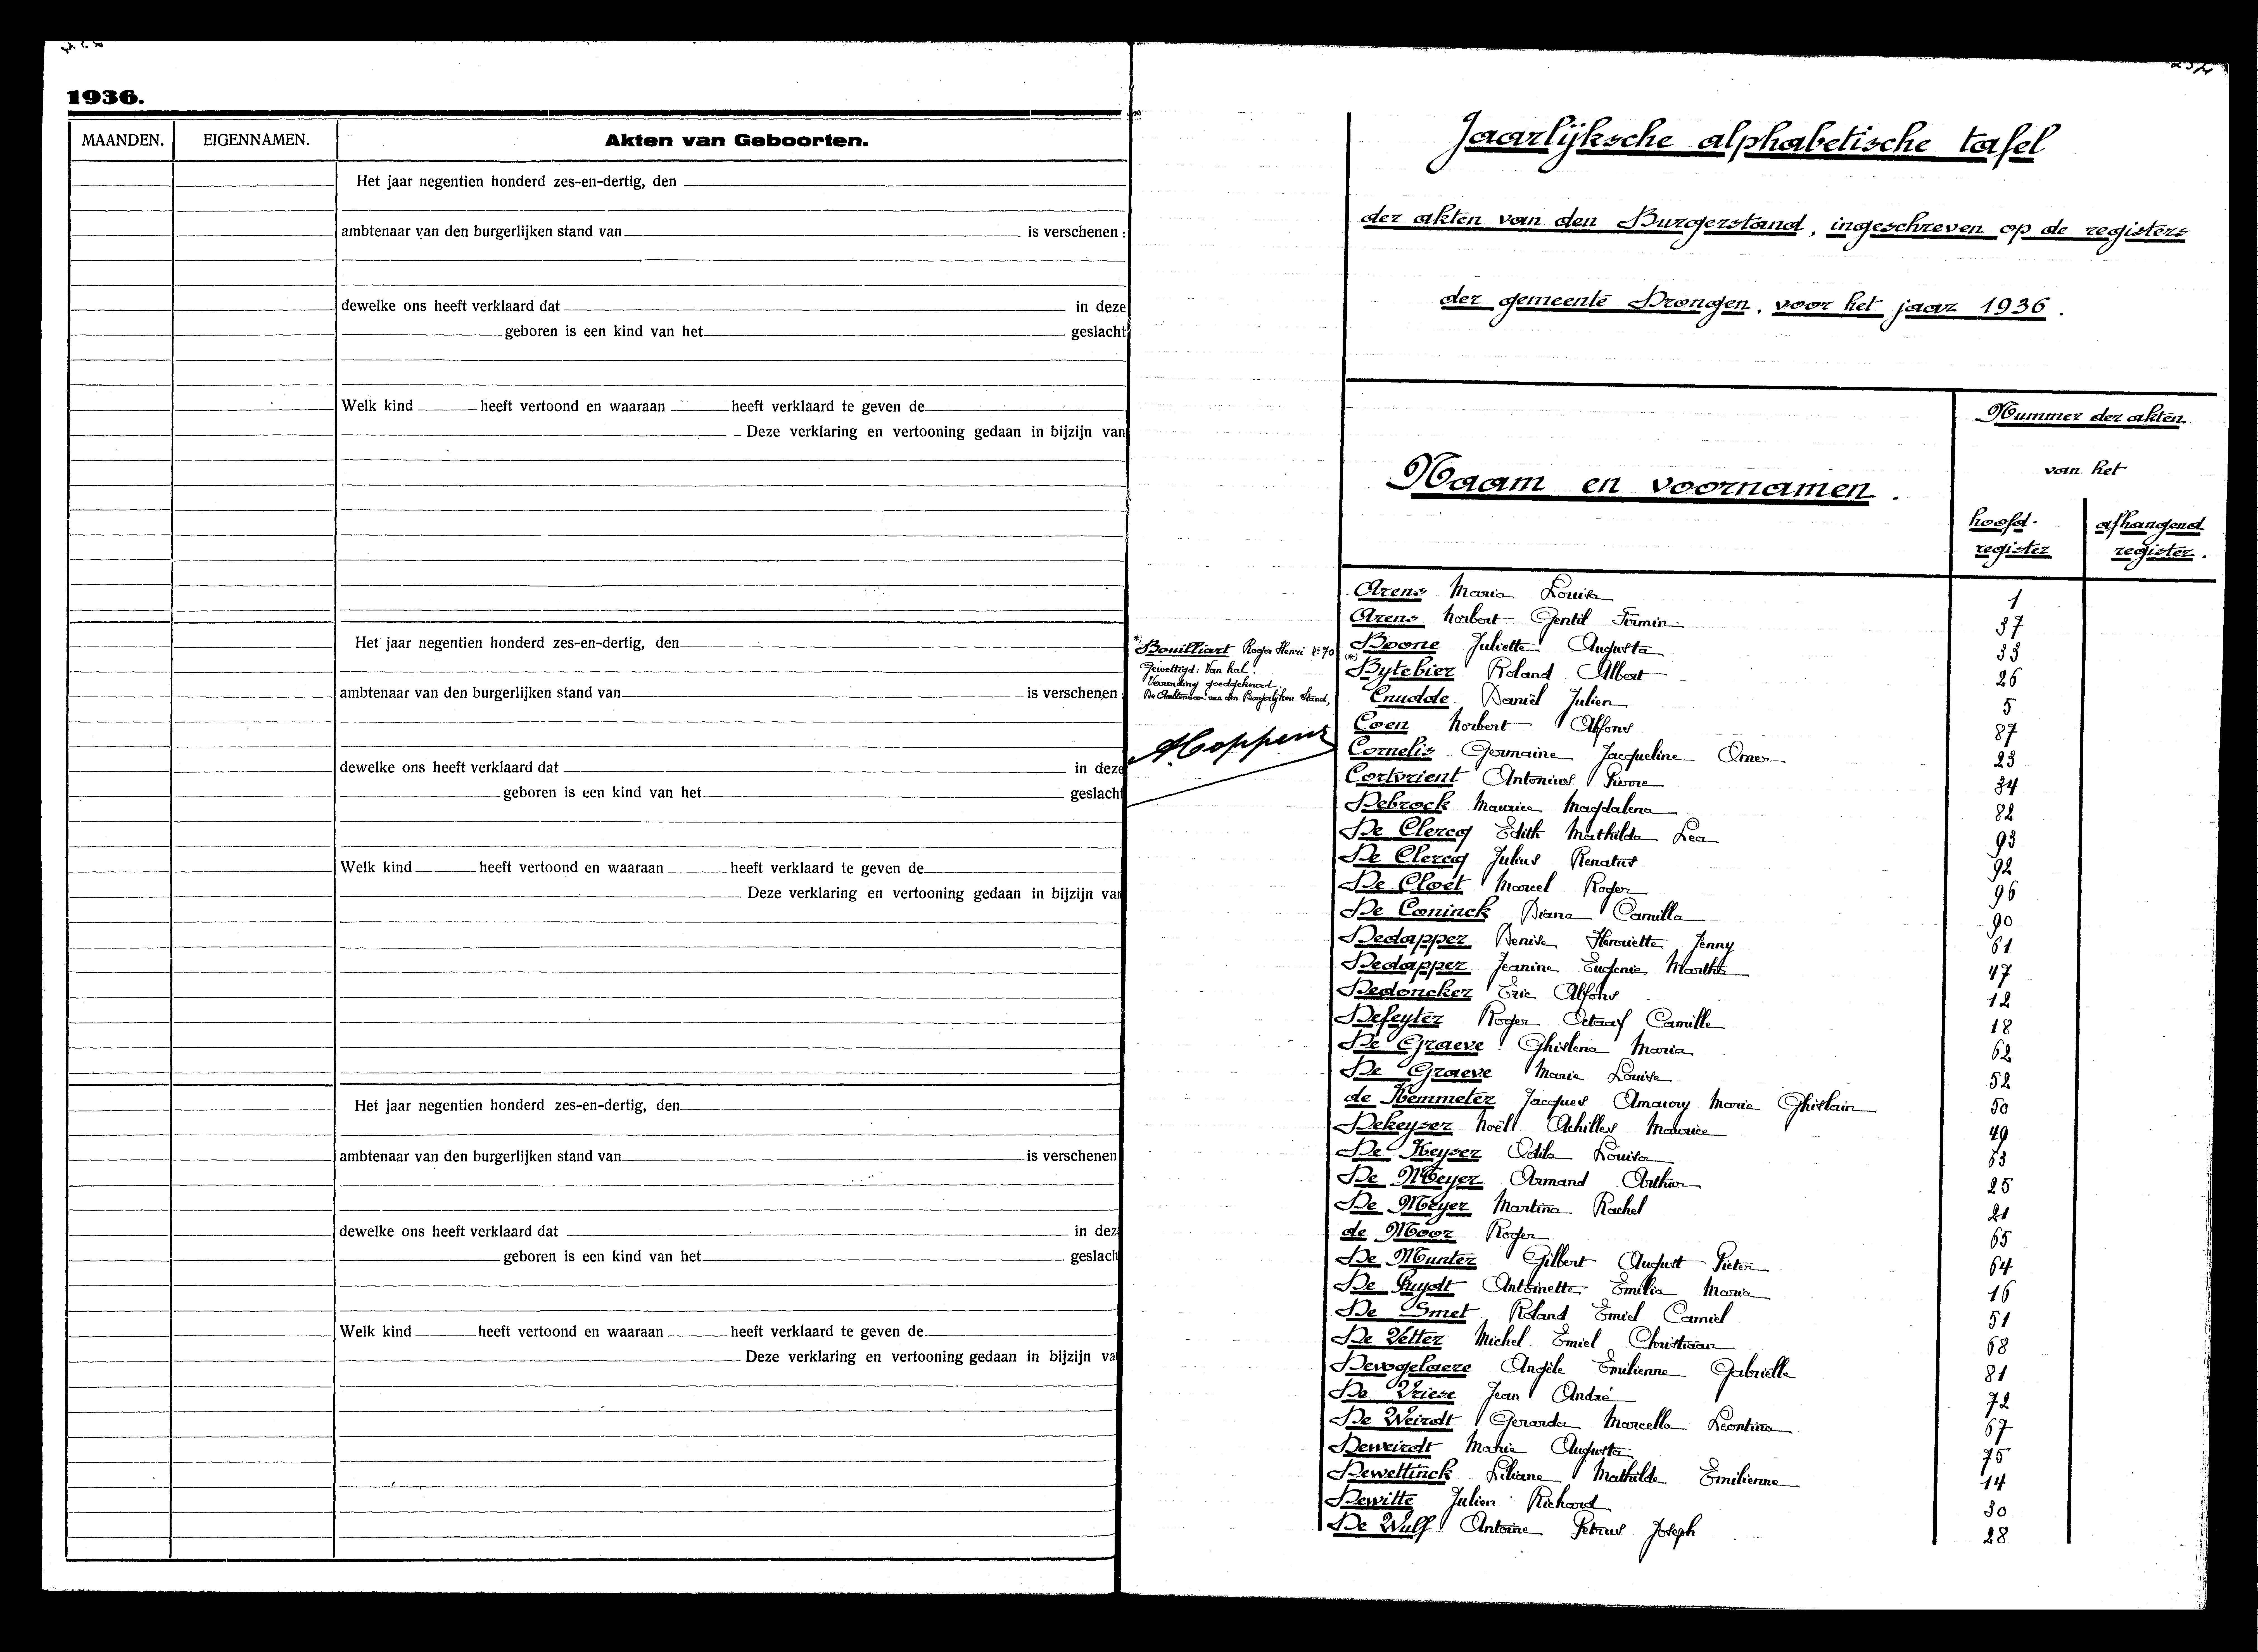 1936.
MAANDEN. EIGENNAMEN. Akten van Geboorten.
Het jaar negentien honderd zes-en-dertig, den
ambtenaar van den burgerlijken stand van is verschenen :
dewelke ons heeft verklaard dat in deze
geboren is een kind van het geslacht
Welk kind heeft vertoond en waaraan heeft verklaard te geven de
Deze verklaring en vertooning gedaan in bijzijn van
Het jaar negentien honderd zes-en-dertig, den
ambtenaar van den burgerlijken stand van is verschenen
dewelke ons heeft verklaard dat in deze
geboren is een kind van het geslacht
Welk kind heeft vertoond en waaraan heeft verklaard te geven de
Deze verklaring en vertooning gedaan in bijzijn van
Het jaar negentien honderd zes-en-dertig, den
ambtenaar van den burgerlijken stand van is verschenen
dewelke ons heeft verklaard dat in dez
geboren is een kind van het geslach
Welk kind heeft vertoond en waaraan heeft verklaard te geven de
Deze verklaring en vertooning gedaan in bijzijn va
Jaarlijksche alphabetische tafel
der akten van den Burgerstand, ingeschreven op de registers
der gemeente Drongen, voor het jaar 1936.
Nummer der akten
van het
Naam en voornamen.
hoofd-register
afhangend register.
*) Bouilliart Roger Henri nr 70
Gewettigd: Van hal.
Verzending goedgekeurd.
De Ambtenaar van den Burgerlijken Stand,
Arens Maria Louisa 1
Arens Norbert Gentil Firmin 37
Boone Juliette Augusta 33
(*) Bytebier Roland Albert 26
Cnudde Daniël Julien 5
Coen Norbert Alfons 87
Cornelis Germaine Jacqueline Omer 23
Cortvrient Antonius Pierre 34
Debrock Maurice Magdalena 82
De Clercq Edith Mathilda Lea 93
De Clercq Julius Renatus 92
De Cloet Marcel Roger 96
De Coninck Diana Camilla 90
Dedapper Denise Henriette Jenny 61
Dedapper Jeanine Eugenie Martha 47
Dedoncker Eric Alfons 12
Defeyter Roger Octaaf Camille 18
De Graeve Ghislena Maria 62
De Graeve Marie Louise 52
de Kemmeter Jacques Amaury Marie Ghislain 50
Dekeyser Noël Achilles Maurice 49
De Keyser Odila Louisa 63
De Meyer Armand Arthur 25
De Meyer Martina Rachel 21
de Moor Roger 65
De Munter Gilbert August Pieter 64
De Puydt Antoinette Emilia Maria 16
De Smet Roland Emiel Camiel 51
De Vetter Michel Emiel Christiaan 68
Devogelaere Angèle Emilienne Gabriëlle 81
De Vriese Jean André 72
De Weirdt Gerarda Marcella Leontina 67
Deweirdt Marie Augusta 75
Dewettinck Liliane Mathilde Emilienne 14
Dewitte Julien Richard 30
De Wulf Antoine Petrus Joseph 28